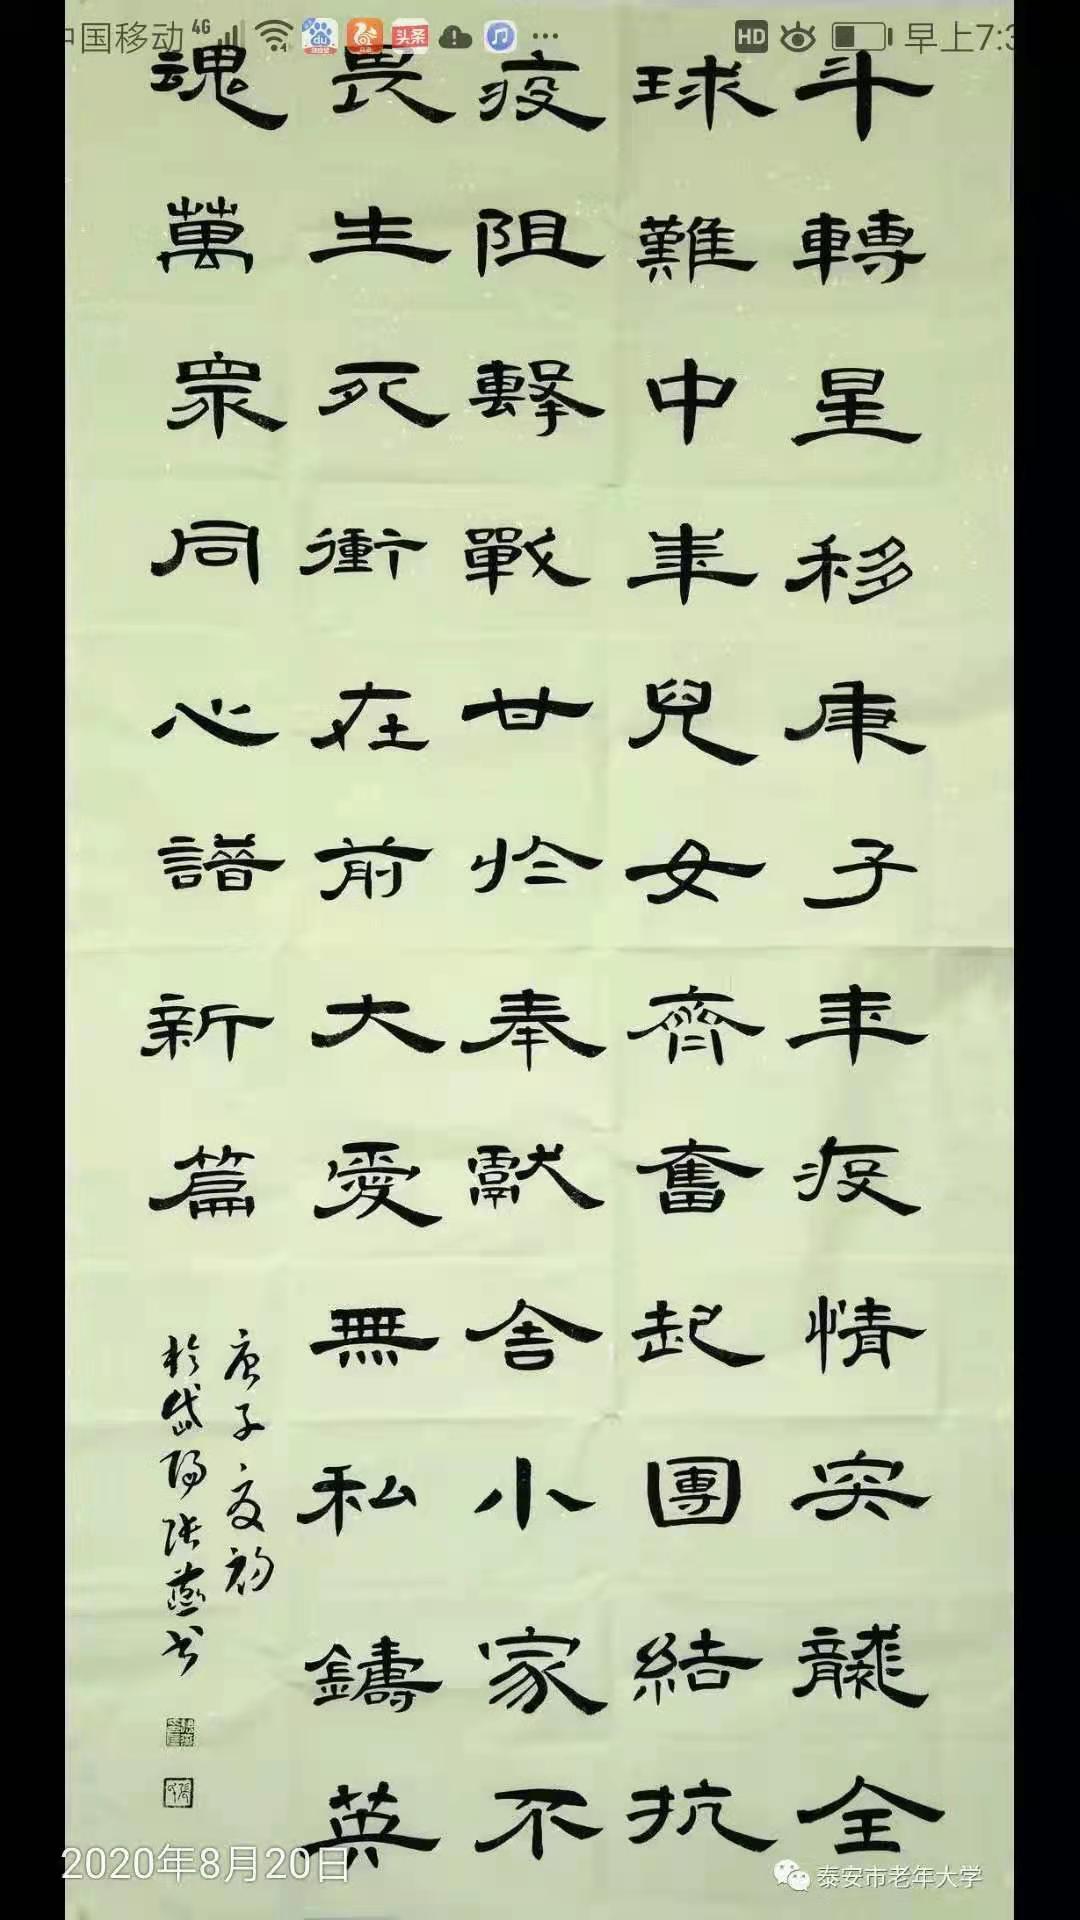 中国移动 4G HD 早上7:3
斗轉星移庚子年疫情突襲全
球難中華兒女齊奮起團結抗
疫阻擊戰甘於奉獻舍小家不
畏生死衝在前大愛無私鑄英
魂萬眾同心譜新篇
庚子夏初
於岱陽張燕书
2020年8月20日
泰安市老年大学